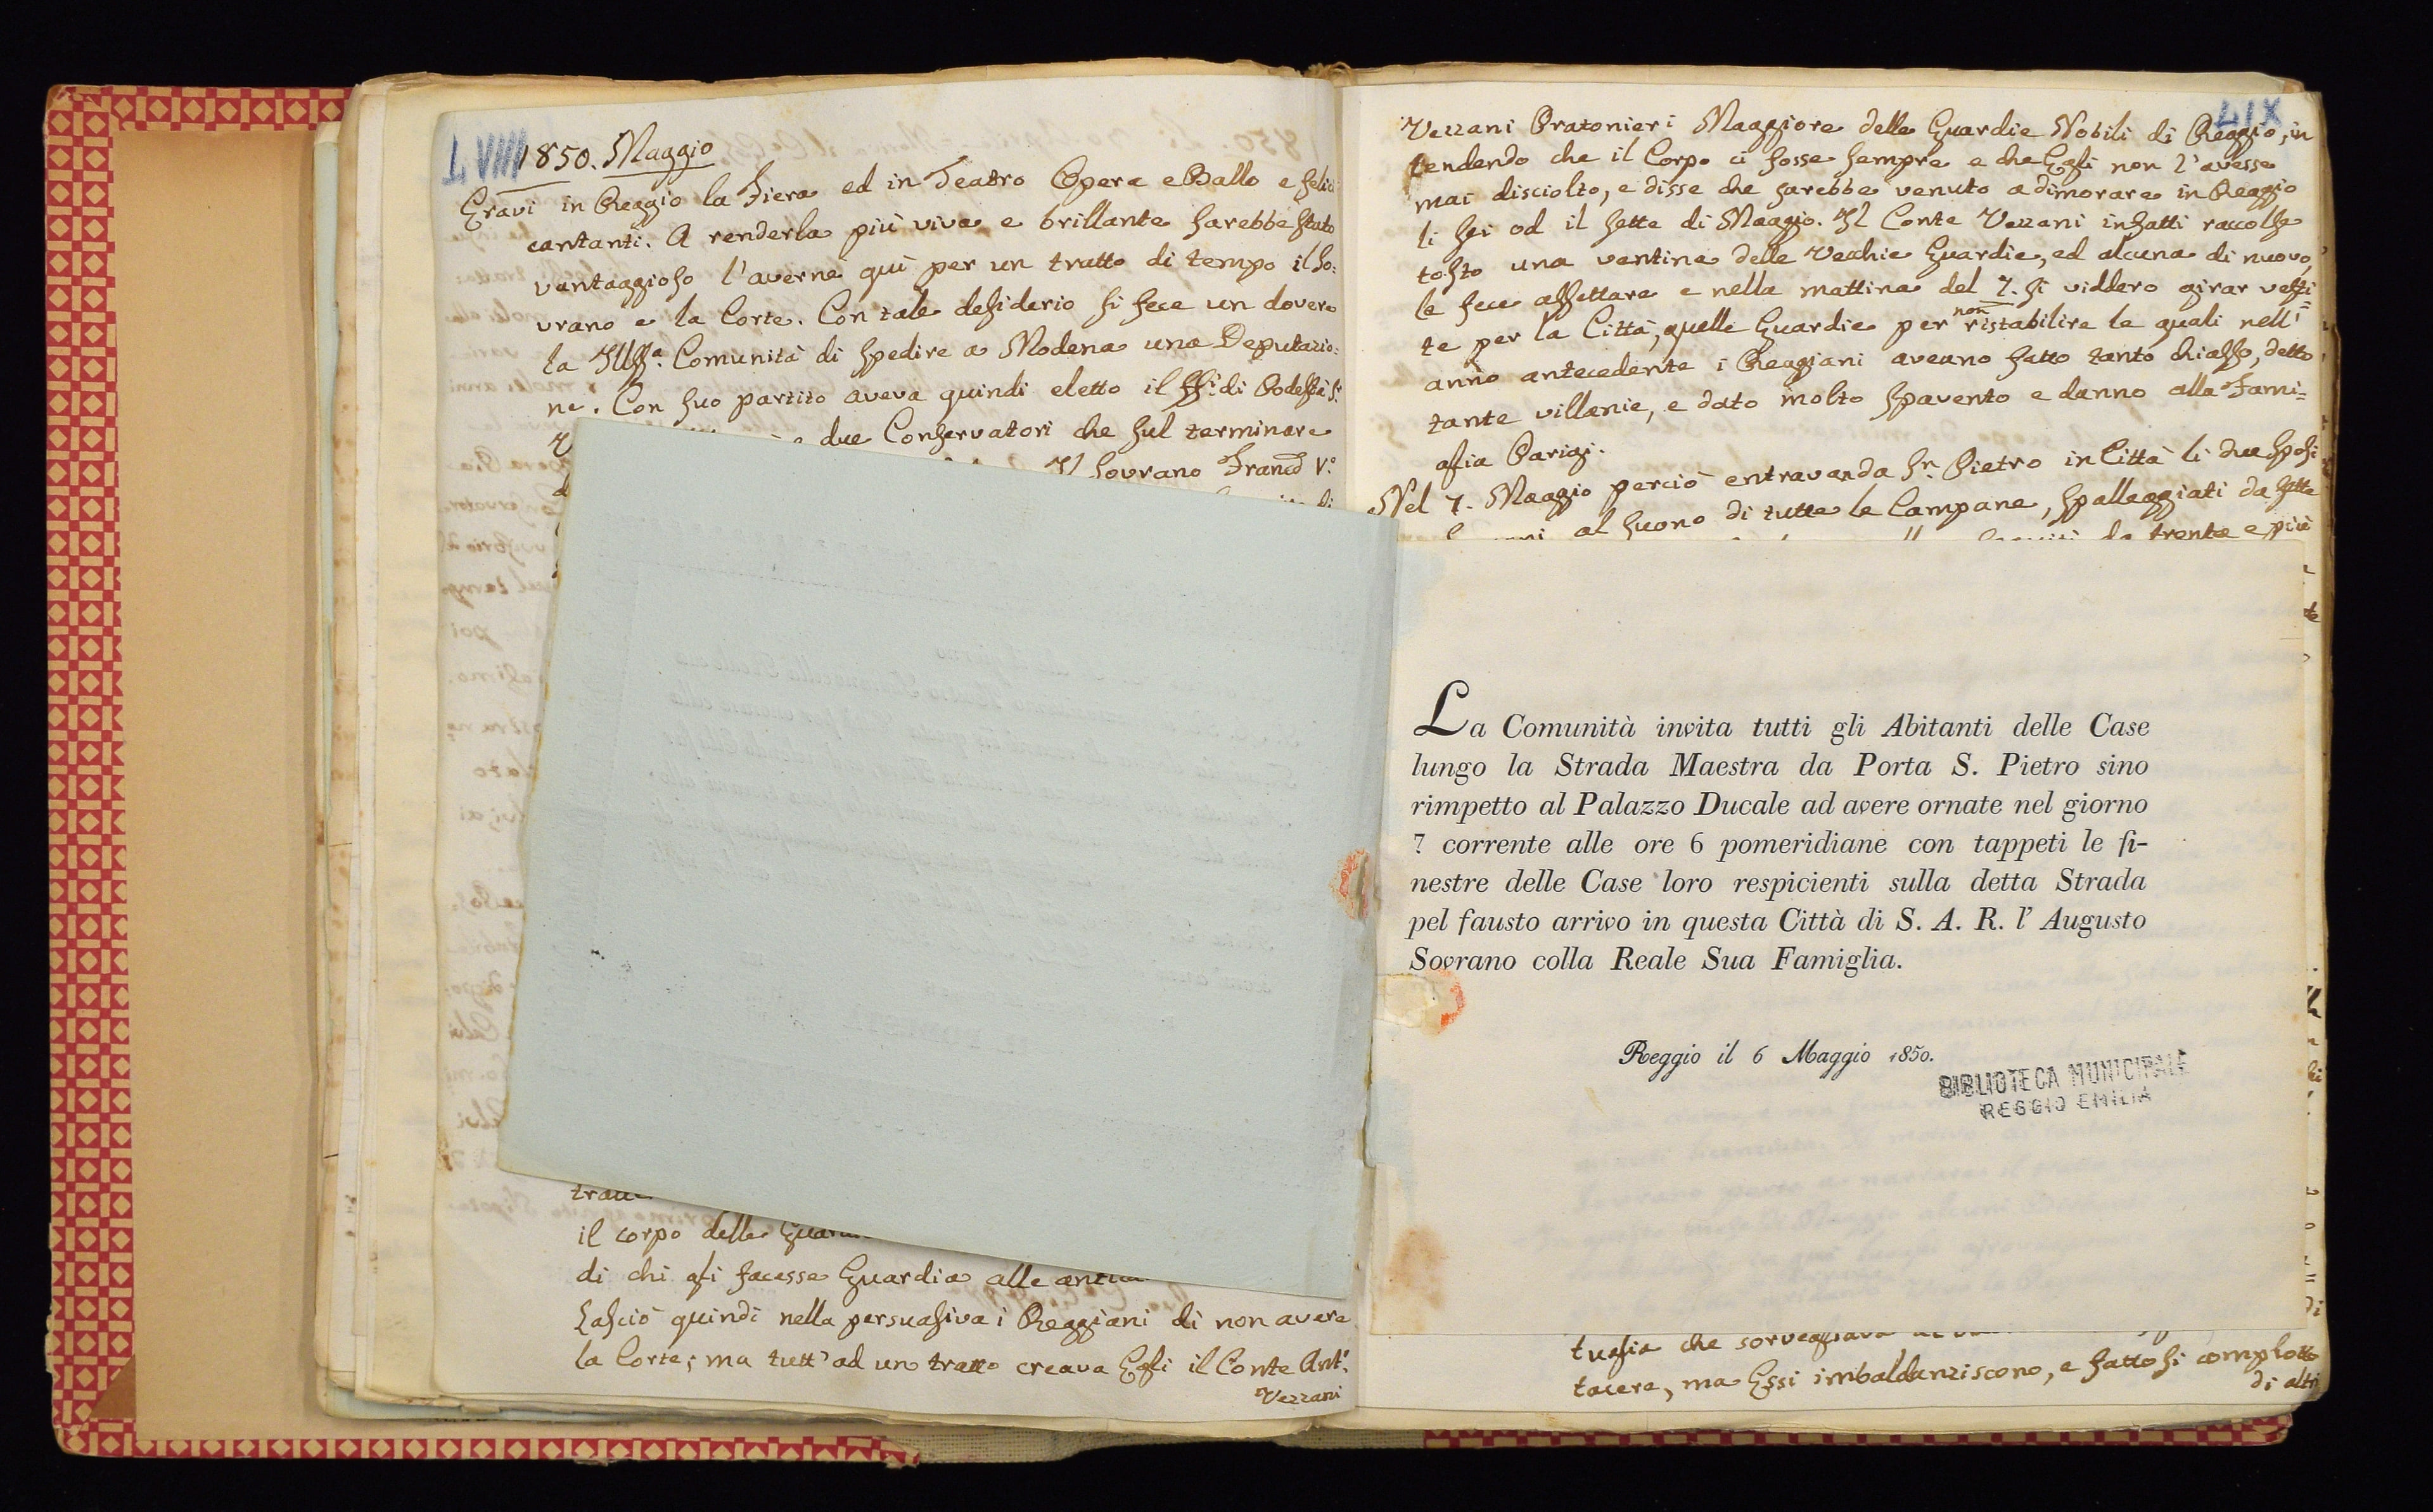 LVIIII
1850. Maggio
Eravi in Reggio la Fiera ed in Teatro Opera e Ballo e felici
cantanti. A renderla più viva e brillante sarebbe stato
vantaggioso l'averne quì per un tratto di tempo il So:
vrano e la Corte. Con tale desiderio si fece un dovere
la Illssa. Comunità di spedire a Modena una Deputazio:
ne. Con suo partito aveva quindi eletto il ff: di Podestà
due Conservatori che sul terminare
Il Sovrano Franco V.o
il corpo delle
di chi gli facesse Guardia alle
Lasciò quindi nella persuasiva i Reggiani di non avere
la Corte; ma tutt'ad un tratto creava Egli il Conte Ant.
Vezzani
LIX
Vezzani Pratonieri Maggiore delle Guardie Nobili di Reggio, in
tendendo che il Corpo ci fosse sempre e che Egli non l'avesse
mai disciolto, e disse che sarebbe venuto a dimorare in Reggio
li sei od il sette di Maggio. Il Conte Vezzani infatti raccolse
tosto una ventina delle Vecchie Guardie, ed alcuna di nuovo,
le fece assettare e nella mattina del 7. si viddero girar vesti=
te per la Città, quelle Guardie per non ristabilire le quali nell'
anno antecedente i Reggiani aveano fatto tanto chiasso, dette
tante villanie, e dato molto spavento e danno alla Fami=
glia Parigi.
Nel 7. Maggio perciò entravan da Sn. Pietro in Città li due Sposi
al suono di tutte le Campane, spalleggiati da sette
da trenta e più
La Comunità invita tutti gli Abitanti delle Case
lungo la Strada Maestra da Porta S. Pietro sino
rimpetto al Palazzo Ducale ad avere ornate nel giorno
7 corrente alle ore 6 pomeridiane con tappeti le fi-
nestre delle Case loro respicienti sulla detta Strada
pel fausto arrivo in questa Città di S. A. R. l' Augusto
Sovrano colla Reale Sua Famiglia.
Reggio il 6 Maggio 1850.
BIBLIOTECA MUNICIPALE
REGGIO EMILIA
che sorvegliava
tacere, ma Essi imbaldanziscono, e fattosi complotto
di altri